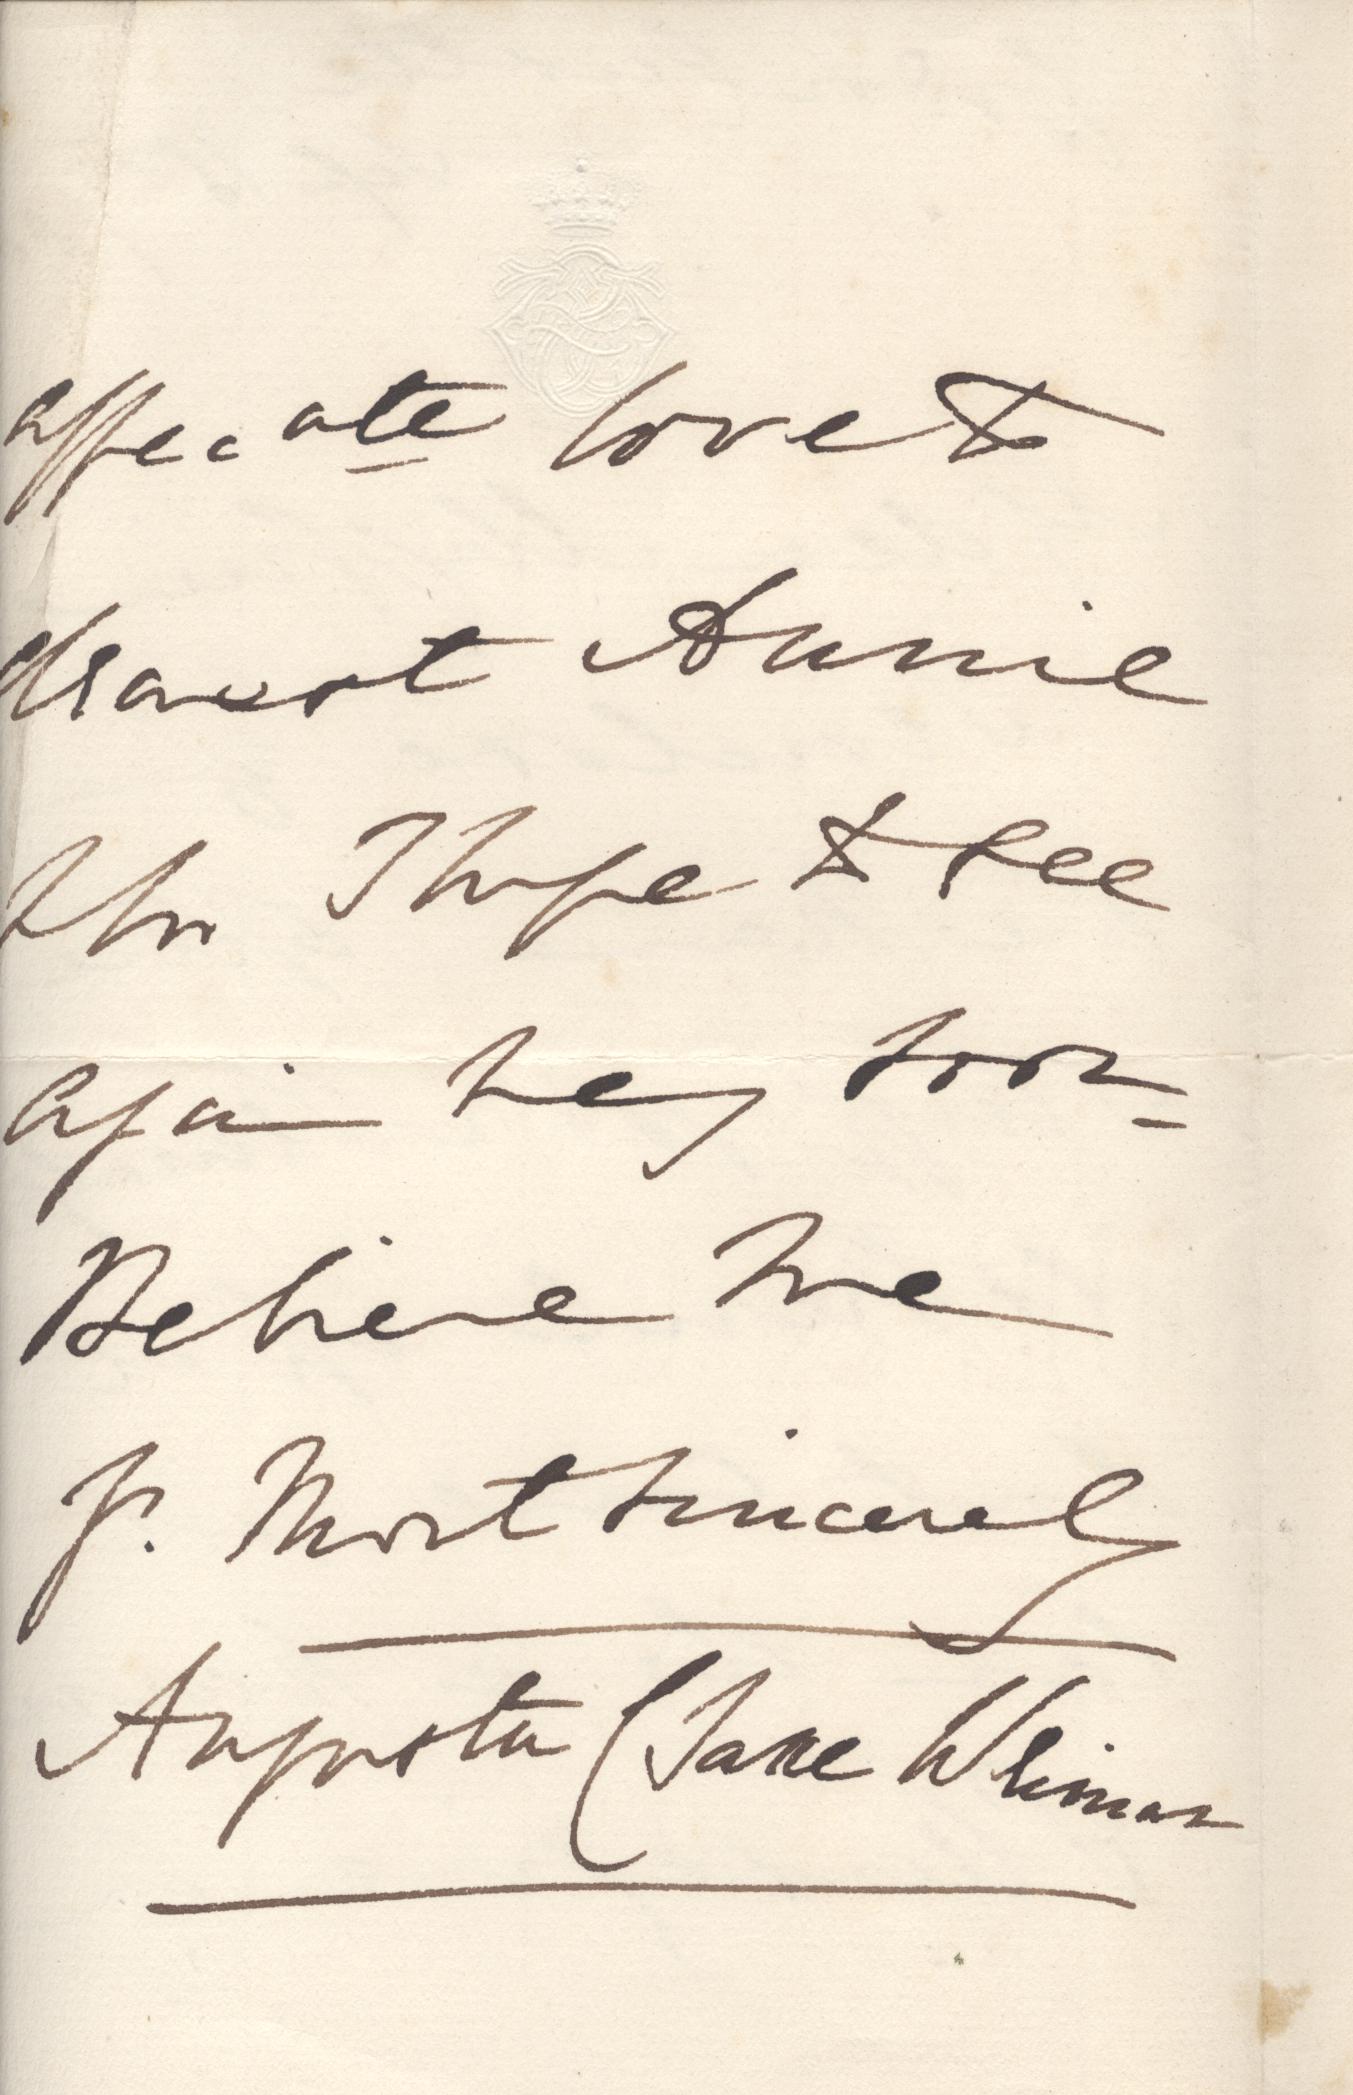 affecate love to
dearest Annie
Who I hope to see
again very soon
Believe me
Yr. Most sincerely
Augusta (Saxe Weimar